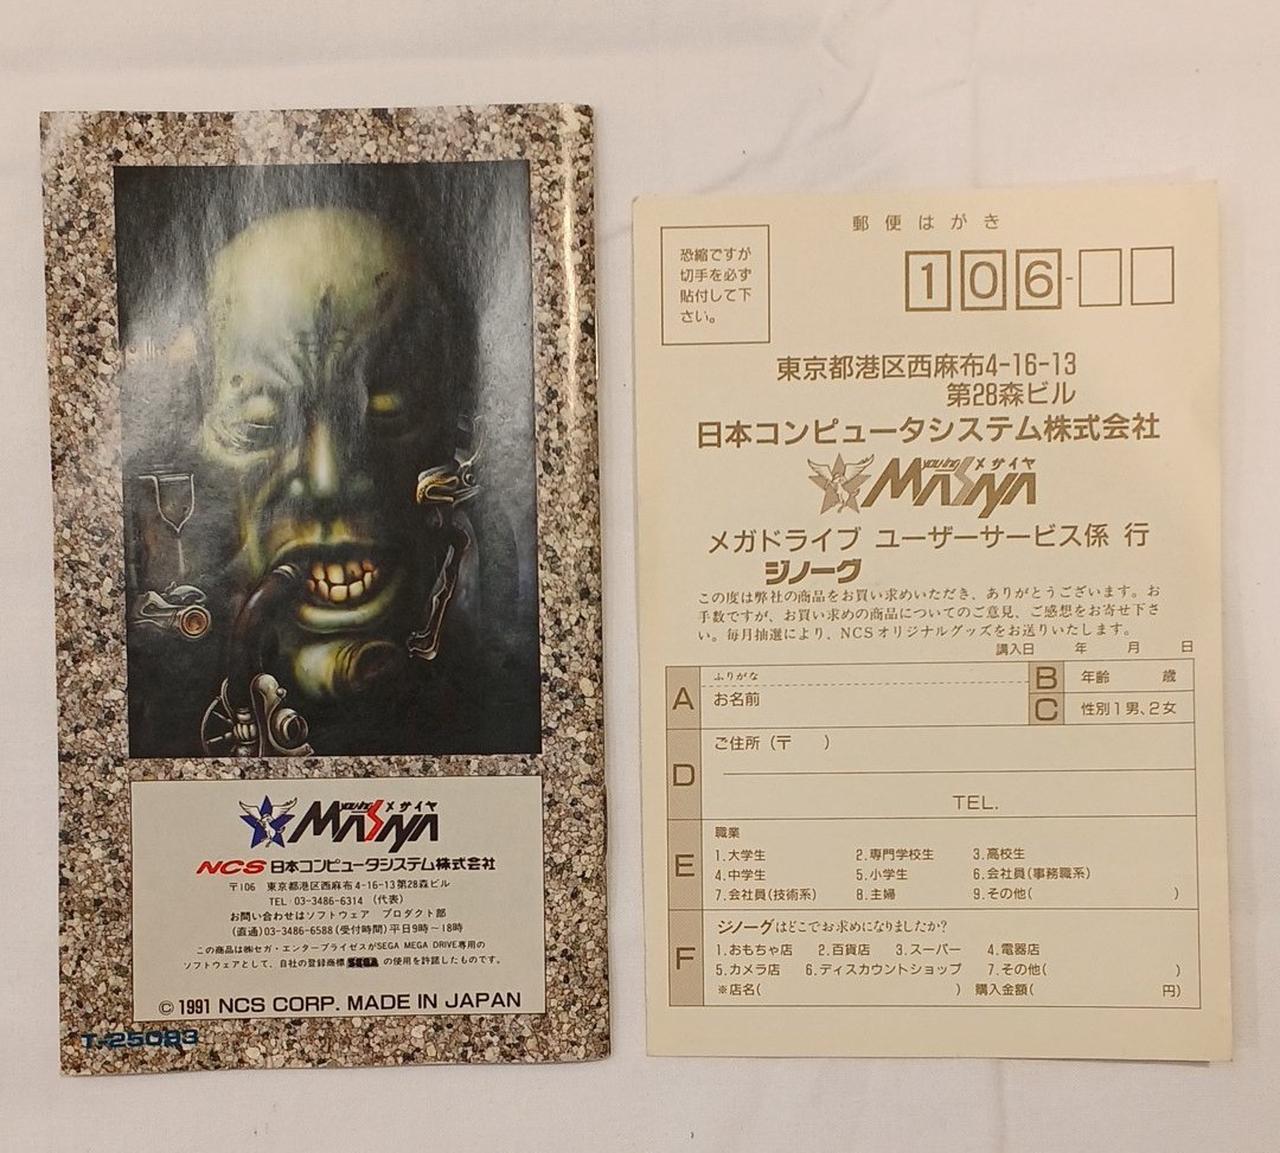 you-ing メサイヤ
MASAYA
NCS 日本コンピュータシステム株式会社
〒106 東京都港区西麻布4-16-13第28森ビル
TEL 03-3486-6314 (代表)
お問い合わせはソフトウェア プロダクト部
(直通)03-3486-6588(受付時間)平日9時～18時
この商品は㈱セガ・エンタープライゼスがSEGA MEGA DRIVE専用の
ソフトウェアとして、自社の登録商標 SEGA の使用を許諾したものです。
© 1991 NCS CORP. MADE IN JAPAN
T-25083
郵便はがき
恐縮ですが
切手を必ず
貼付して下
さい。
106-
東京都港区西麻布4-16-13
第28森ビル
日本コンピュータシステム株式会社
you-ing メサイヤ
MASAYA
メガドライブ ユーザーサービス係 行
ジノーグ
この度は弊社の商品をお買い求めいただき、ありがとうございます。お
手数ですが、お買い求めの商品についてのご意見、ご感想をお寄せ下さ
い。毎月抽選により、NCSオリジナルグッズをお送りいたします。
購入日 年 月 日
A ふりがな
お名前
B 年齢 歳
C 性別 1男、2女
D ご住所(〒 )
TEL.
E 職業
1.大学生 2.専門学校生 3.高校生
4.中学生 5.小学生 6.会社員(事務職系)
7.会社員(技術系) 8.主婦 9.その他( )
F ジノーグはどこでお求めになりましたか?
1.おもちゃ店 2.百貨店 3.スーパー 4.電器店
5.カメラ店 6.ディスカウントショップ 7.その他( )
※店名( ) 購入金額( 円)